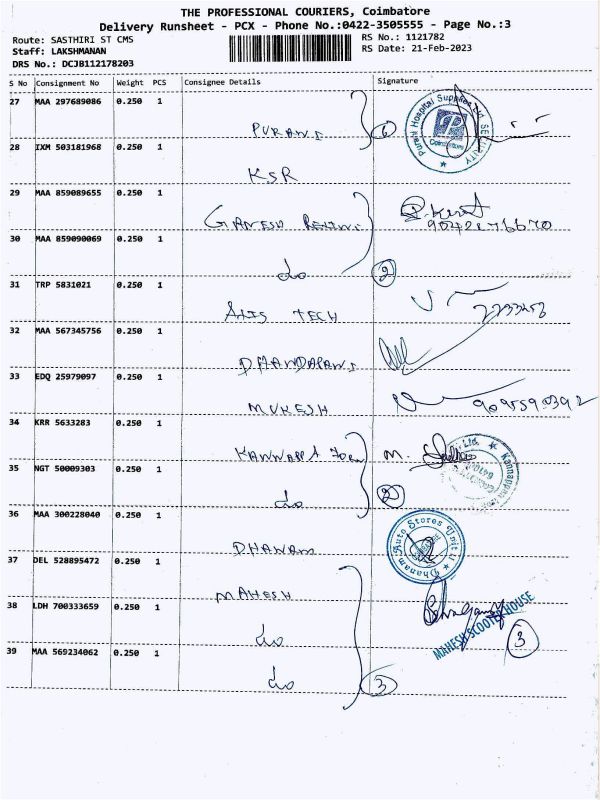 THE PROFESSIONAL COURIERS, Coimbatore
Delivery Runsheet - PCX - Phone No.:0422-3505555 - Page No.:3
Route: SASTHIRI ST CMS RS No.: 1121782
Staff: LAKSHMANAN RS Date: 21-Feb-2023
DRS No.: DCJB112178203
S No Consignment No Weight PCS Consignee Details Signature
27 MAA 297689086 0.250 1
PURANI 6 Purani Hospital Supplies Ltd. SECURITY Coimbatore
28 IXM 503181968 0.250 1
KSR
29 MAA 859089655 0.250 1
GANESH
30 MAA 859090069 0.250 1
do 2
31 TRP 5831021 0.250 1
TECH
32 MAA 567345756 0.250 1
DHANDAPANI
33 EDQ 25979097 0.250 1
MUKESH
34 KRR 5633283 0.250 1
KANNAPPA M.
35 NGT 50009303 0.250 1
do 2
36 MAA 300228040 0.250 1
DHANAM Dhanam Auto Stores Unit I
37 DEL 528895472 0.250 1
MAHESH
38 LDH 700333659 0.250 1
do MAHESH SCOOTER HOUSE 3
39 MAA 569234062 0.250 1
do 3